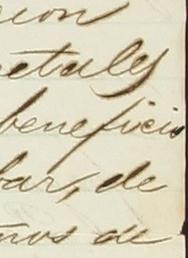 cion
etales
beneficio
bar, de
mos de